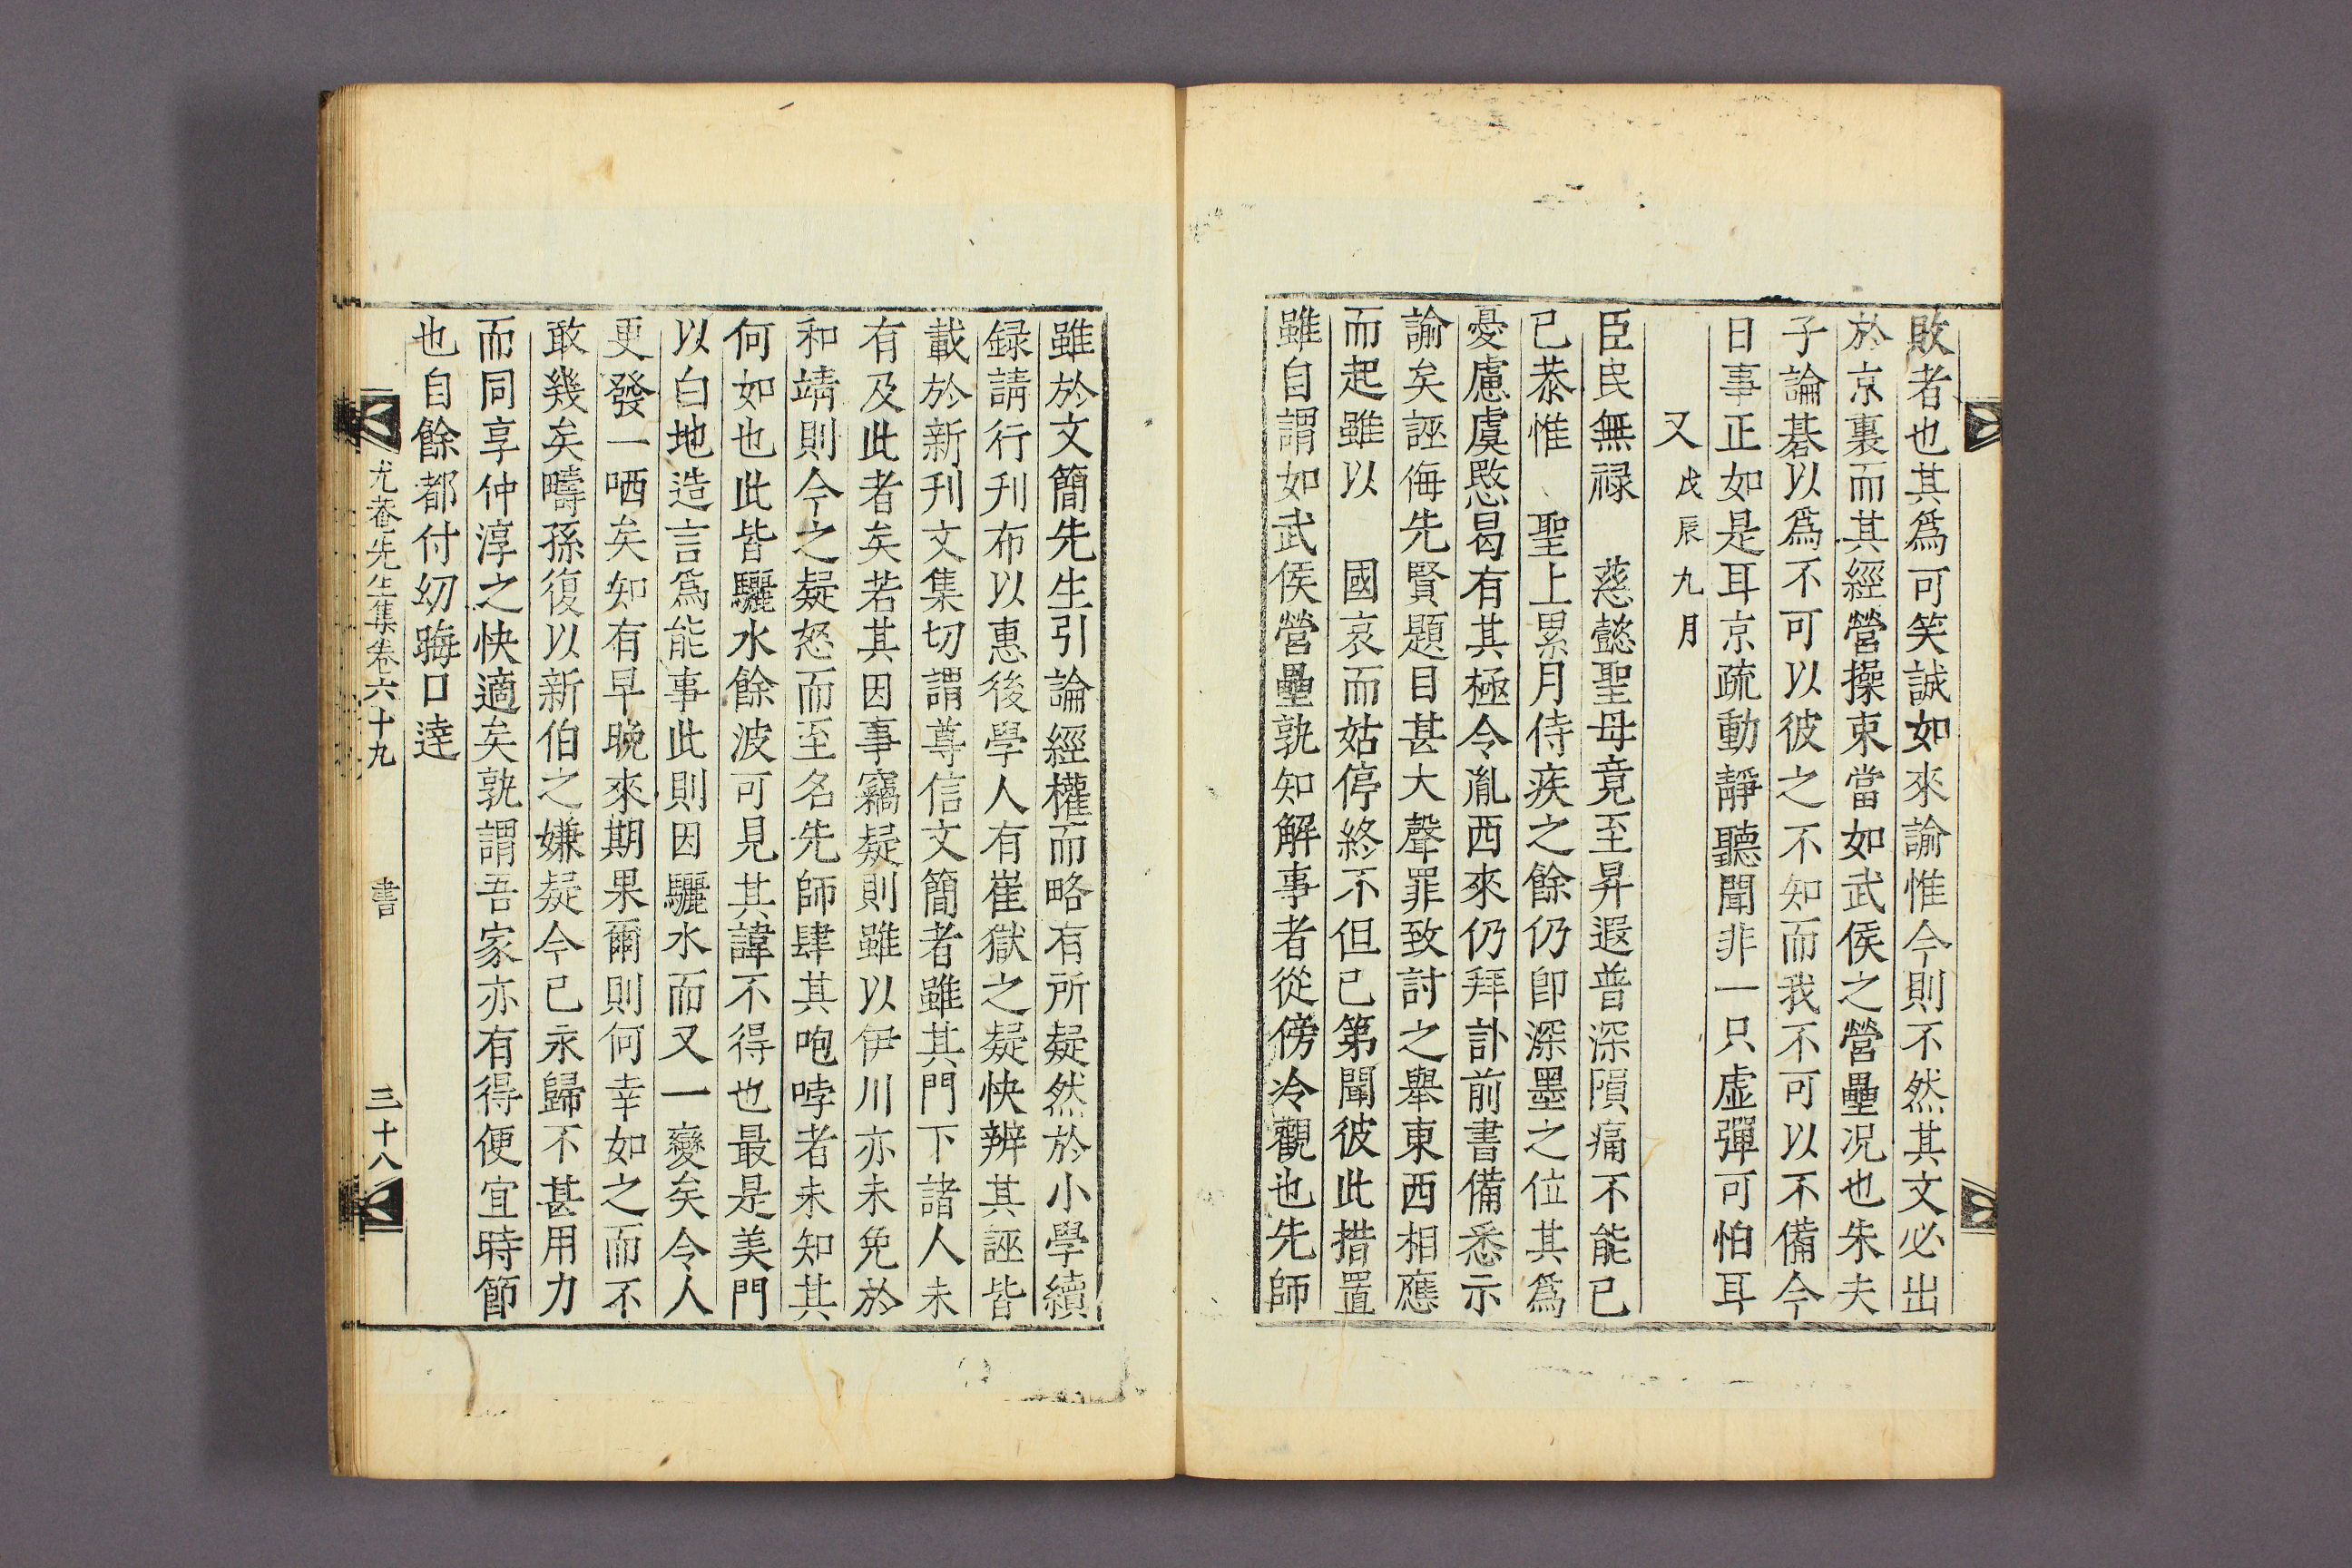 敗者也其爲可笑誠如來諭惟今則不然其文必出
於京裏而其經營操束當如武侯之營壘况也朱夫
子論碁以爲不可以彼之不知而我不可以不備今
日事正如是耳京疏動靜聽聞非一只虚彈可怕耳
又戊辰九月
臣民無祿 慈懿聖母竟至昇遐普深隕痛不能已
已恭惟 聖上累月侍疾之餘仍卽深墨之位其爲
憂慮虞愍曷有其極令胤西來仍拜訃前書備悉示
諭矣誣侮先賢題目甚大聲罪致討之舉東西相應
而起雖以 國哀而姑停終不但已第聞彼此措置
雖自謂如武侯營壘孰知解事者從傍冷觀也先師
雖於文簡先生引論經權而略有所疑然於小學續
録請行刊布以惠後學人有崔獄之疑快辨其誣皆
載於新刊文集切謂尊信文簡者雖其門下諸人未
有及此者矣若其因事竊疑則雖以伊川亦未免於
和靖則今之疑怒而至名先師肆其咆哮者未知其
何如也此皆驪水餘波可見其諱不得也最是美門
以白地造言爲能事此則因驪水而又一變矣令人
更發一哂矣知有早晚來期果爾則何幸如之而不
敢幾矣疇孫復以新伯之嫌疑今已永歸不甚用力
而同享仲淳之快適矣孰謂吾家亦有得便宜時節
也自餘都付㓜晦口達
尤菴先生集卷六十九 書 三十八